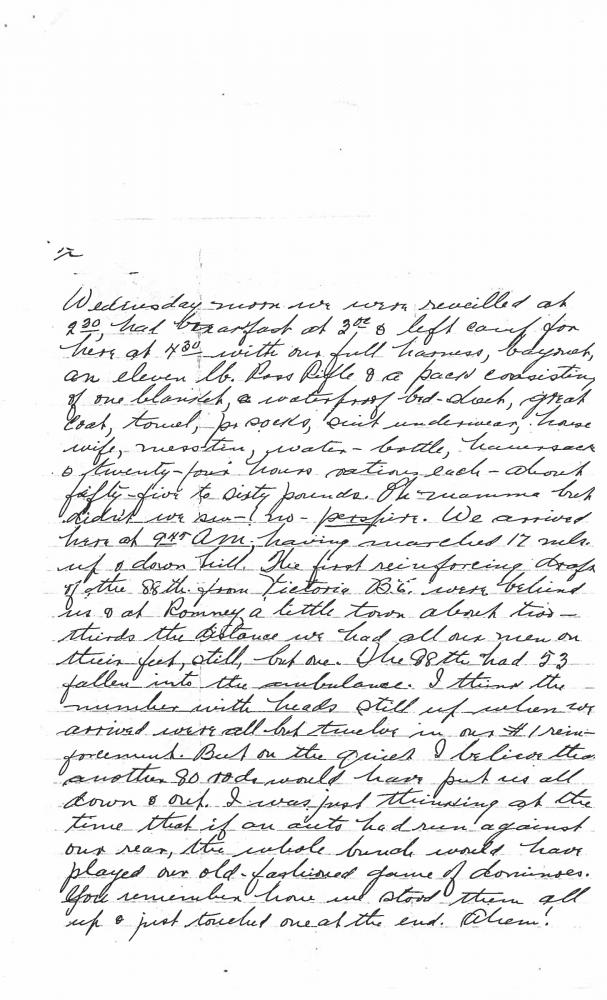 Wednesday morn we were reveilled at
2 30, had breakfast at 3 00 & left camp for
here at 4 30 with our full harness, bayonet,
an eleven lb. Ross Rifle & a pack consisting
of one blanket, a waterproof bed-sheet, great
coat, towel, pr socks, suit underwear, house
wife, mess tin, water-bottle, haversack
& twenty-four hours rations each - about
fifty-five to sixty pounds. Oh mamma but
didn't we sw-! no - perspire. We arrived
here at 9 45 AM, having marched 17 mls.
up & down hill. The first reinforcing draft
of the 88th from Victoria B.C. were behind
us & at Romney a little town about two-
thirds the distance we had all our men on
their feet, still, but one. The 88th had 53
fallen into the ambulance. I think the
number with heads still up when we
arrived were all but twelve in our #1 rein-
forcement. But on the quiet I believe that
another 80 rods would have put us all
down & out. I was just thinking at the
time that if an auto had run against
our rear, the whole bunch would have
played our old-fashioned game of dominoes.
You remember how we stood them all
up & just touched one at the end. Ahem!